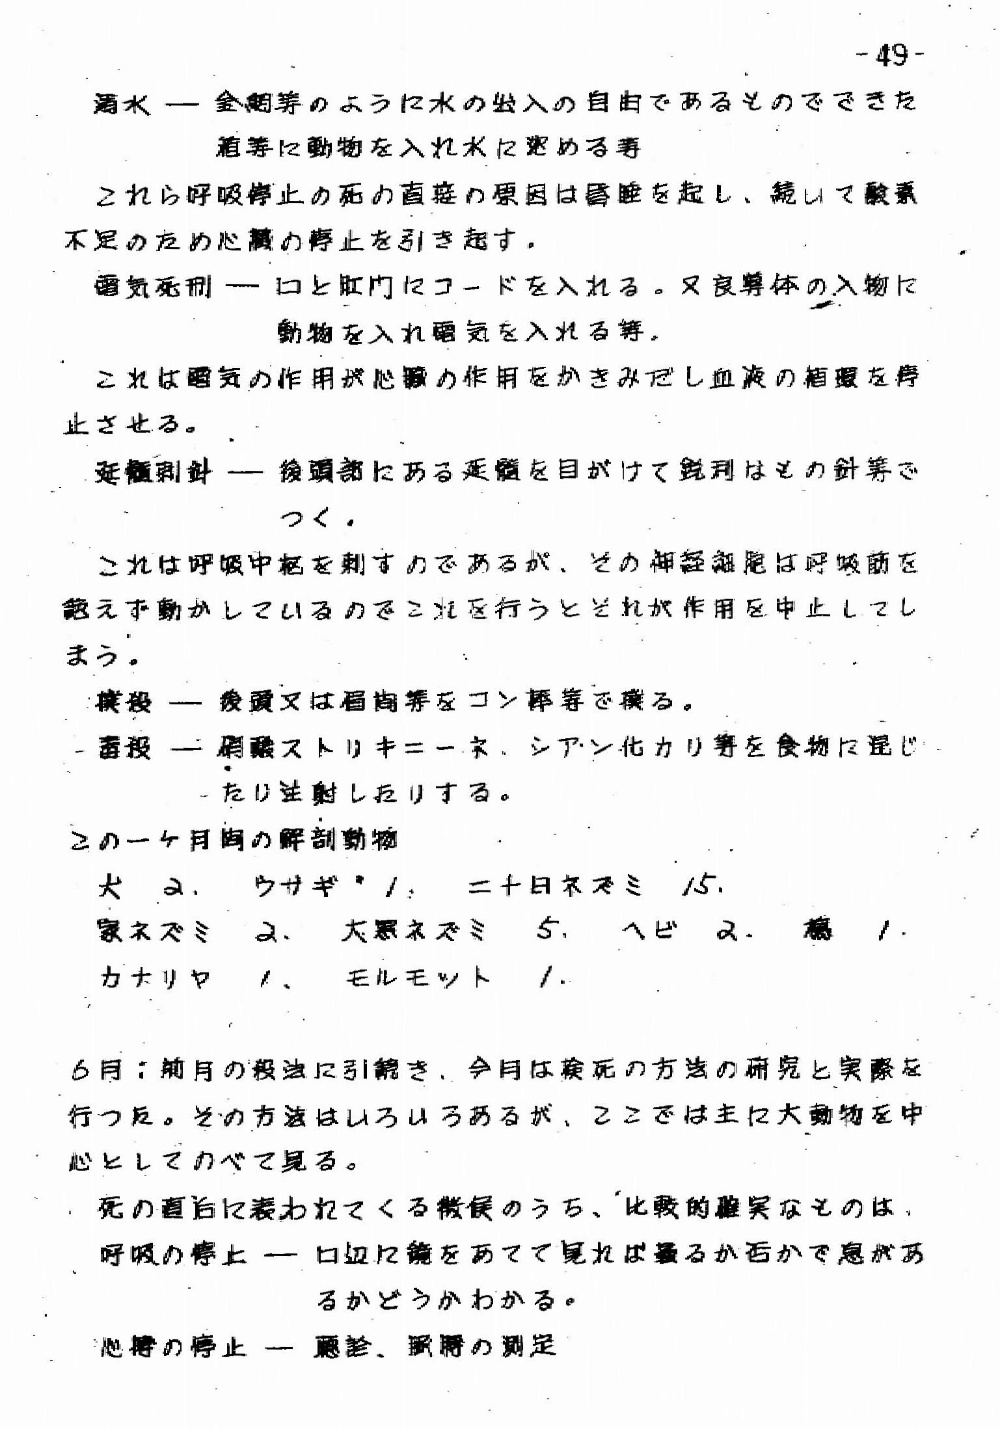 -49-
溺水 ― 金網等のように水の出入の自由であるものでできた
箱等に動物を入れ水に沈める等
これら呼吸停止の死の直接の原因は昏睡を起し、続いて酸素
不足のため心臓の停止を引き起す.
電気死刑 ― 口と肛門にコードを入れる。又良導体の入物に
動物を入れ電気を入れる等.
これは電気の作用が心臓の作用をかきみだし血液の循環を停
止させる。
延髄刺針 ― 後頭部にある延髄を目がけて鋭利はもの針等で
つく.
これは呼吸中枢を刺すのであるが、その神経細胞は呼吸筋を
絶えず動かしているのでこれを行うとそれが作用を中止してし
まう。
撲殺 ― 後頭又は眉間等をコン棒等で撲る。
毒殺 ― 硝酸ストリキニーネ、シアン化カリ等を食物に混じ
たり注射したりする。
この一ケ月間の解剖動物
犬 2. ウサギ 1. 二十日ネズミ 15.
家ネズミ 2. 大黒ネズミ 5. ヘビ 2. 1.
カナリヤ 1、 モルモット 1.
6月:前月の殺法に引続き、今月は検死の方法の研究と実際を
行つた。その方法はいろいろあるが、ここでは主に大動物を中
心としてのべて見る。
死の直后に表われてくる徴候のうち、比較的確実なものは、
呼吸の停止 ― 口辺に鏡をあてて見れば曇るか否かで息があ
るかどうかわかる。
心搏の停止 ― 聴診、脈搏の測定